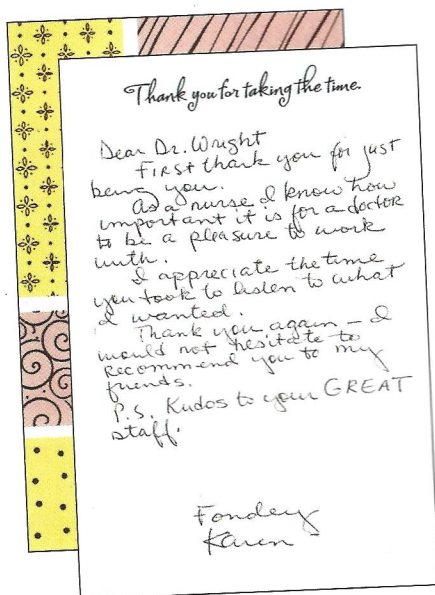 Thank you for taking the time.
Dear Dr. Wright
First thank you for just
being you.
As a nurse I know how
important it is for a doctor
to be a pleasure to work
with.
I appreciate the time
you took to listen to what
I wanted.
Thank you again – I
would not hesitate to
recommend you to my
friends.
P.S. Kudos to your GREAT
staff.
Fondey
Karen